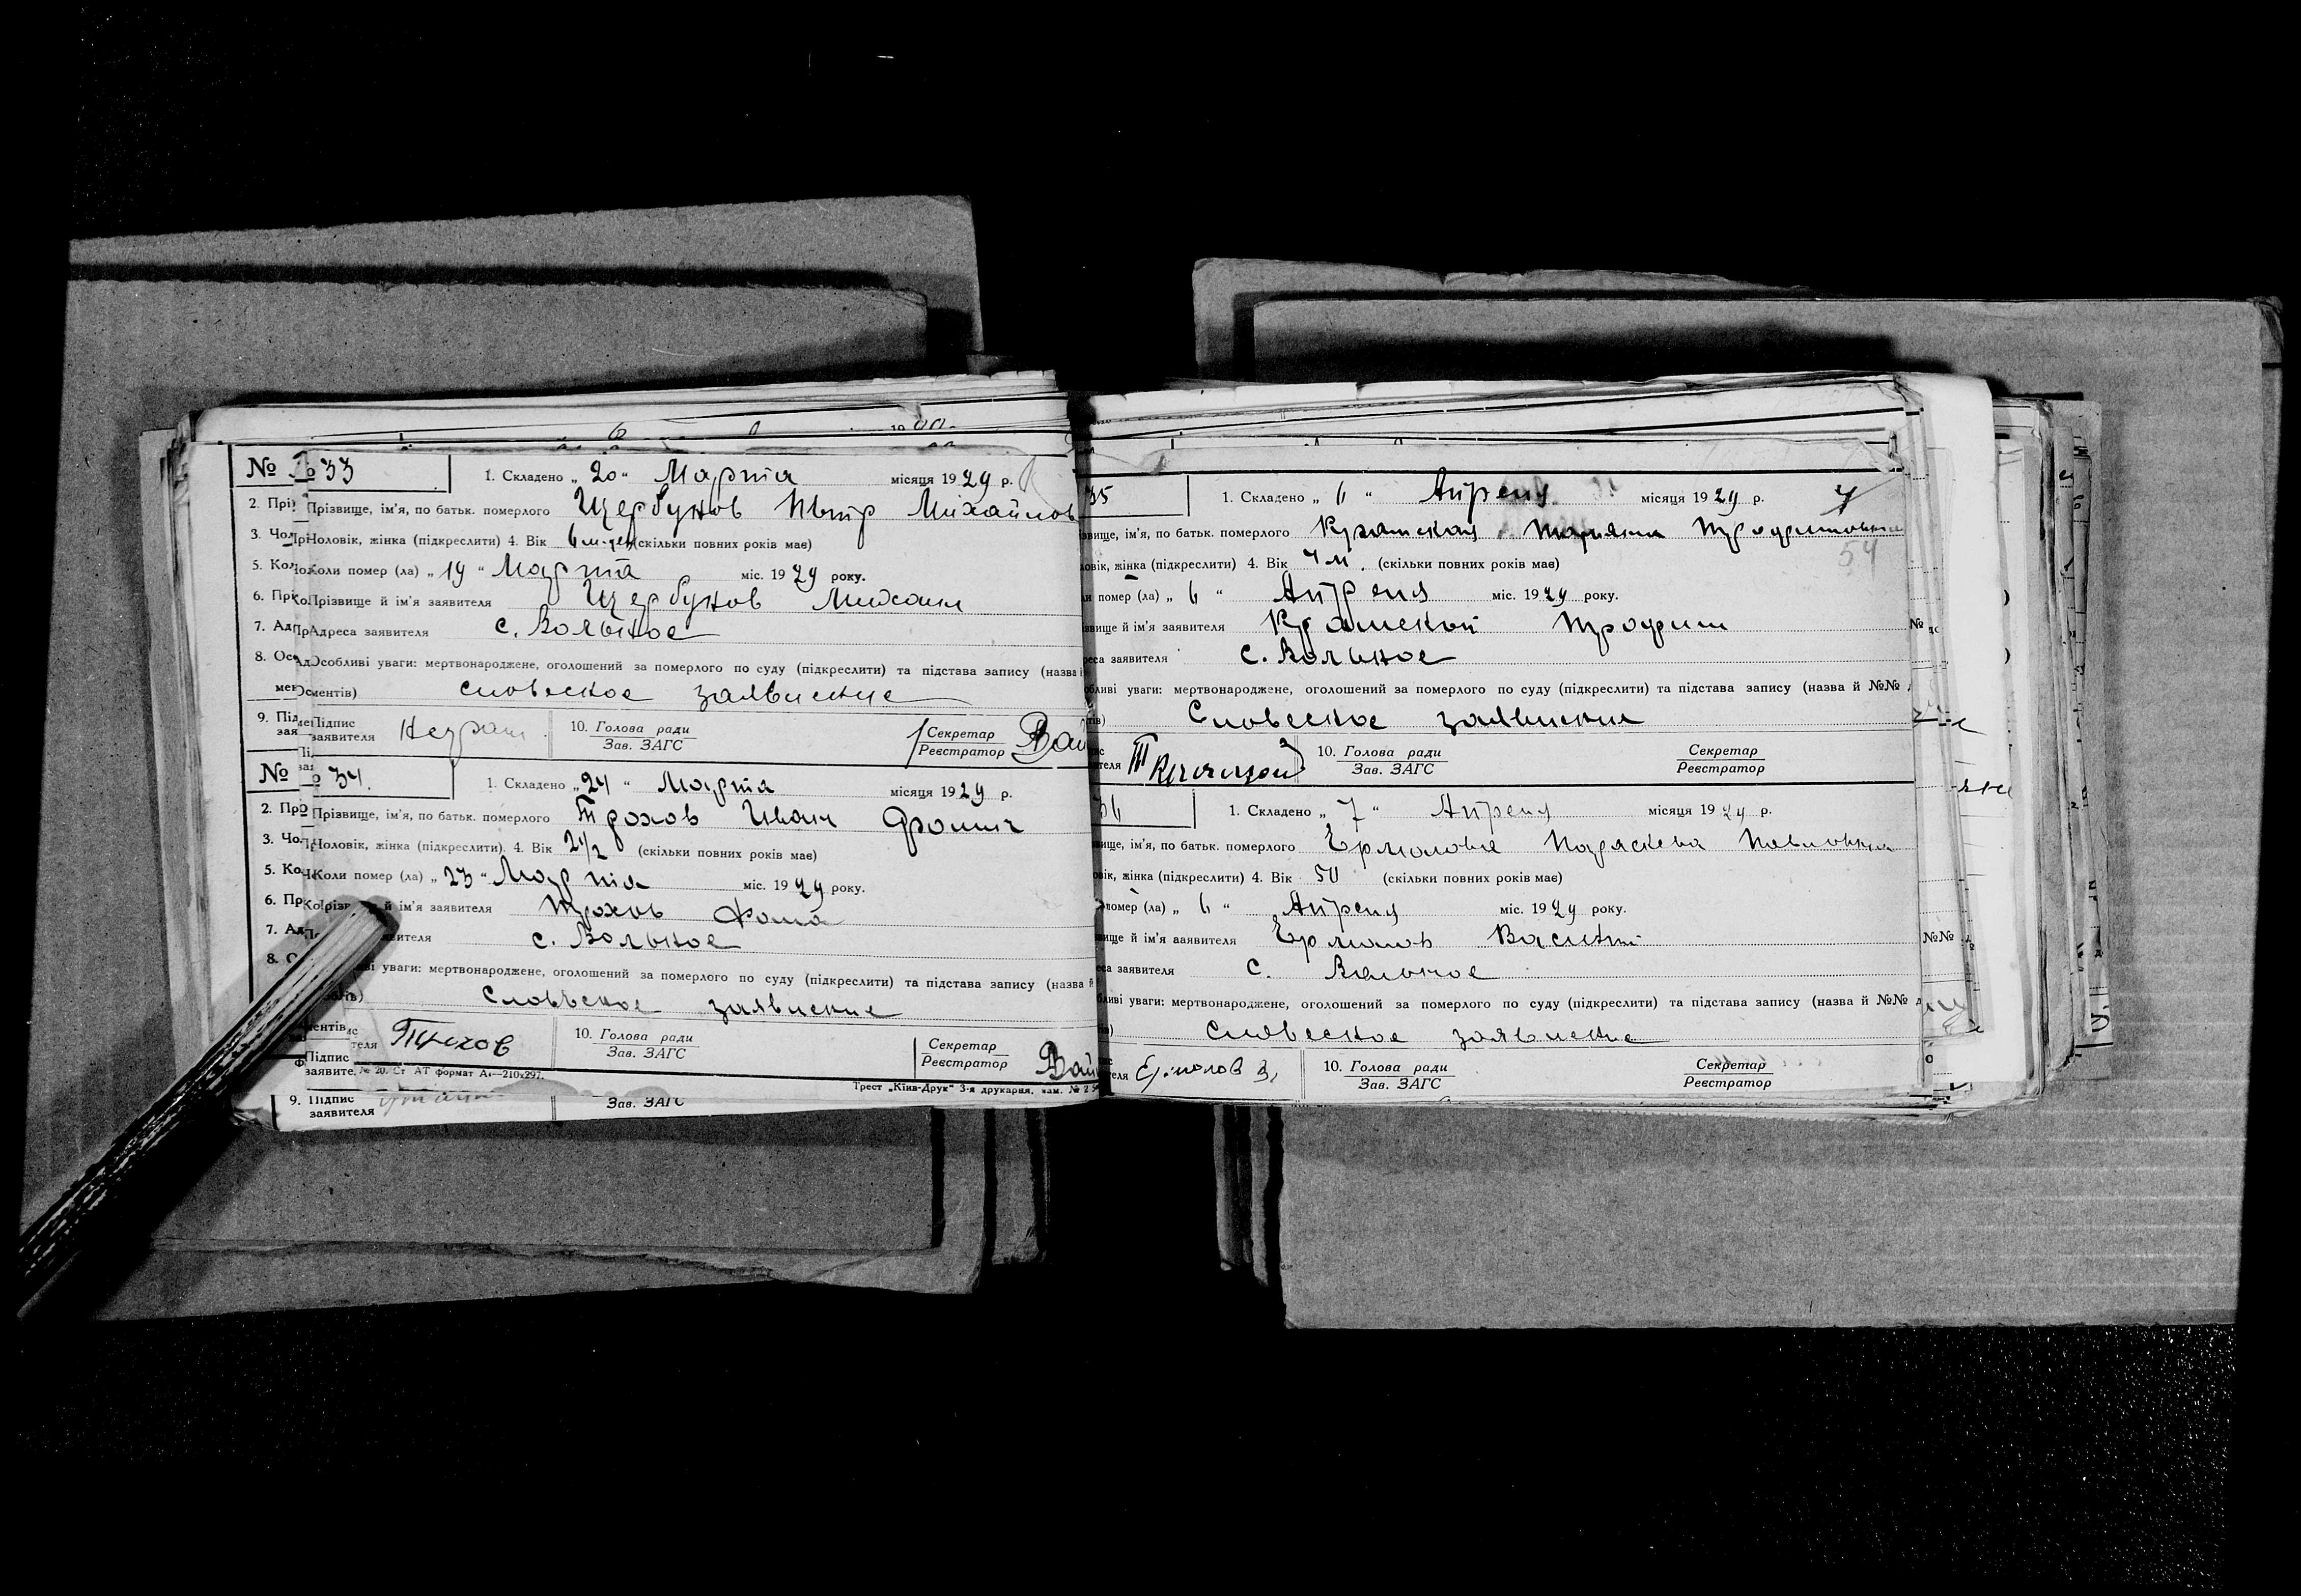 № 33
1. Складено „ 20 “ Марта місяця 19 29 р.
Прізвище, ім'я, по батьк. померлого Щербунов Пьтр Михайлов
Чоловік, жінка (підкреслити) 4. Вік 6 м-цев (скільки повних років має)
Коли помер (ла) „ 19 “ Марта міс. 19 29 року.
Прізвище й ім'я заявителя Щербунов Михаил
Адреса заявителя с. Вольное
Особливі уваги: мертвонароджене, оголошений за померлого по суду (підкреслити) та підстава запису (назва
ментів) словеское заявление
Підпис
заявителя
10. Голова ради
Зав. ЗАГС
Секретар
Реєстратор
№ 34.
1. Складено „ 24 “ Марта місяця 19 29 р.
Прізвище, ім'я, по батьк. померлого Трохов Иван Фомич
Чоловік, жінка (підкреслити). 4. Вік 2 1/2 (скільки повних років має)
Коли помер (ла) „ 23 “ Марта міс. 19 29 року.
й ім'я заявителя Трохов Фома
с. Вольное
уваги: мертвонароджене, оголошений за померлого по суду (підкреслити) та підстава запису (назва й
Словеское заявление
Трохов
10. Голова ради
Зав. ЗАГС
Секретар
Реєстратор
Підпис
№ 20. Ст АТ формат А₄—210х297.
Трест „Київ-Друк“ 3-я друкарня, зам. №
9. Підпис
заявителя
Зав. ЗАГС
35
1. Складено „ 6 “ Апреля місяця 19 29 р.
ім'я, по батьк. померлого Крамская Татьяна Трофимовна
54
жінка (підкреслити) 4. Вік 4 м. (скільки повних років має)
помер (ла) „ 6 “ Апреля міс. 19 29 року.
й ім'я заявителя Крамской Трофим
заявителя с. Вольное
уваги: мертвонароджене, оголошений за померлого по суду (підкреслити) та підстава запису (назва й №№
Словеское заявление
10. Голова ради
Зав. ЗАГС
Секретар
Реєстратор
36
1. Складено „ 7 “ Апреля місяця 19 29 р.
ім'я, по батьк. померлого Ермолова Параскева Павловна
жінка (підкреслити) 4. Вік 50 (скільки повних років має)
помер (ла) „ 6 “ Апреля міс. 19 29 року.
й ім'я заявителя Ермолов Василий
заявителя с. Вольное
уваги: мертвонароджене, оголошений за померлого по суду (підкреслити) та підстава запису (назва й №№
Словеское заявление
Ермолов В.
10. Голова ради
Зав. ЗАГС
Секретар
Реєстратор